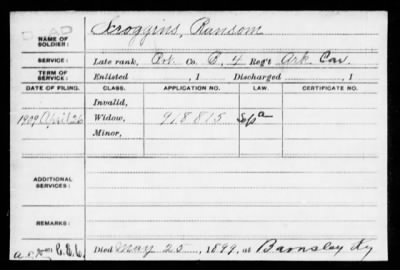 DEAD
NAME OF SOLDIER: Scroggins, Ransom
SERVICE: Late rank, Pvt. Co. E, 4 Reg't Ark Cav.
TERM OF SERVICE: Enlisted , 1 Discharged , 1
DATE OF FILING. CLASS. APPLICATION NO. LAW. CERTIFICATE NO.
Invalid,
1909 April 26 Widow, 918815
Minor,
ADDITIONAL SERVICES:
REMARKS:
Died May 25, 1899, at Barnsley Ky